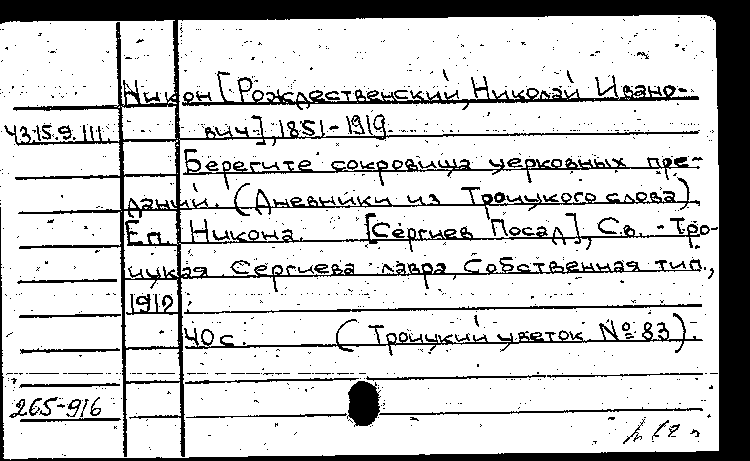 Никон [Рождественский, Николай Ивано-
Ч3.15.9.III. вич], 1851-1919.
Берегите сокровища церковных пре-
даний. (Дневники из Троицкого слова)
Еп. Никона. [Сергиев Посад], Св.-Тро-
ицкая Сергиева лавра, Собственная тип.,
1910.
40 с. (Троицкий цветок № 83).
265-916